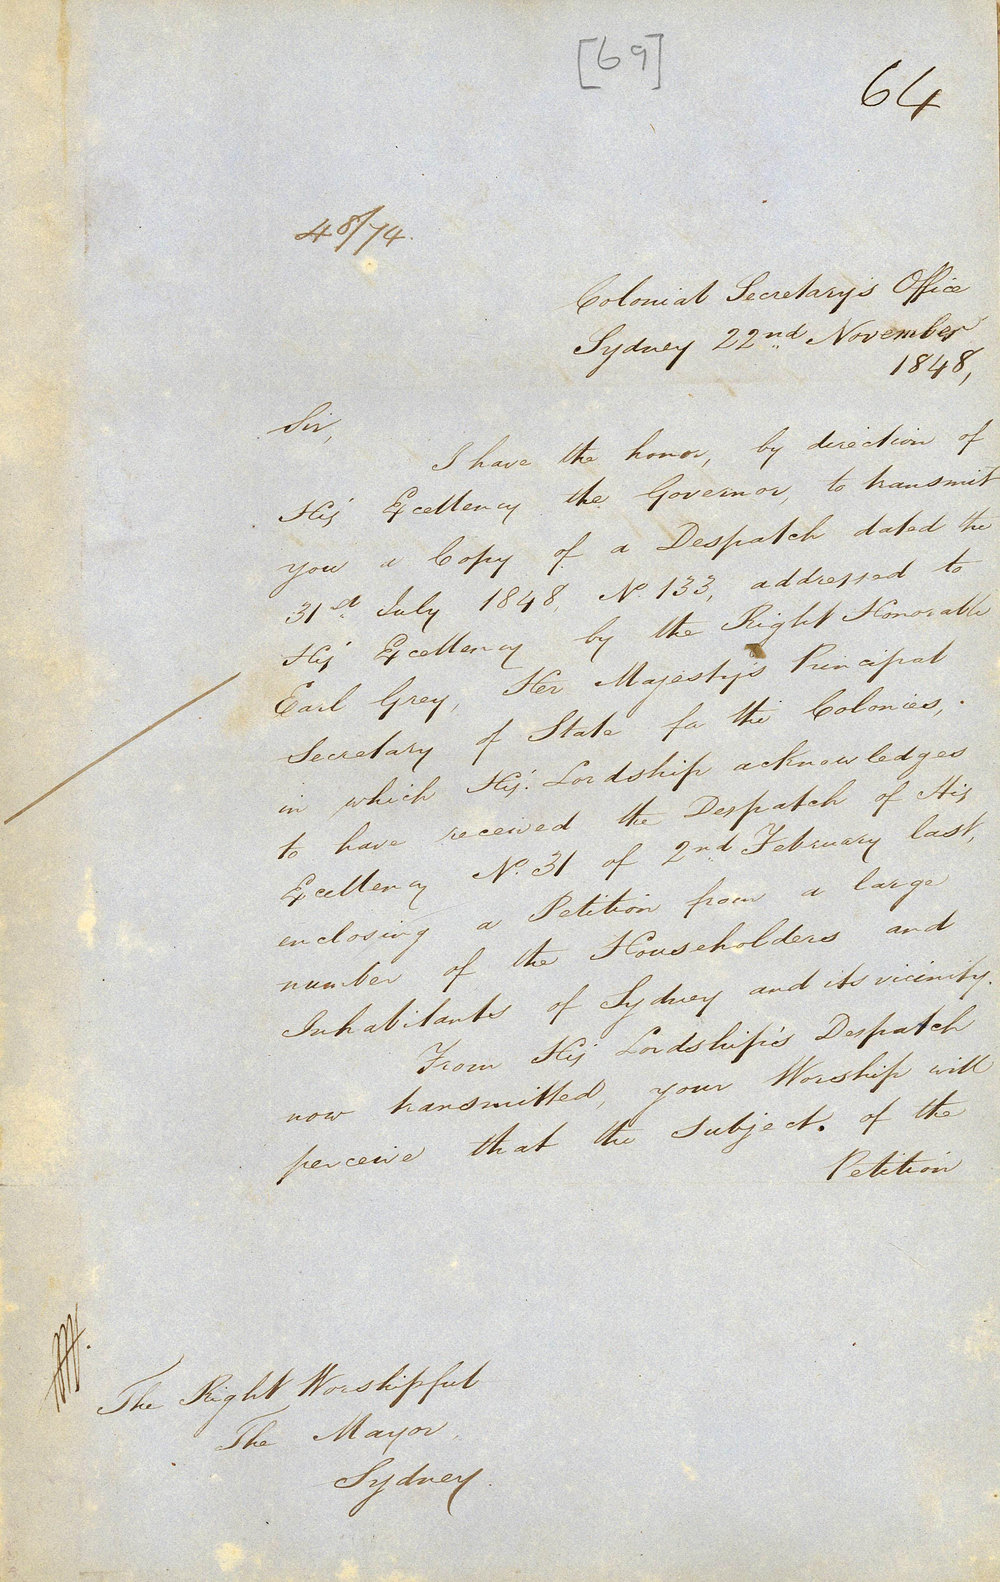 [69]
64
48/74.
Colonial Secretary's Office
Sydney 22nd November
1848,
Sir,
I have the honor, by direction of
His Excellency the Governor, to transmit
you a Copy of a Despatch dated the
31st July 1848, No. 133, addressed to
His Excellency by the Right Honorable
Earl Grey, Her Majesty's Principal
Secretary of State for the Colonies,
in which His Lordship acknowledges
to have received the Despatch of His
Excellency No. 31 of 2nd February last,
enclosing a Petition from a large
number of the Householders and
Inhabitants of Sydney and its vicinity.
From His Lordship's Despatch
now transmitted, your Worship will
perceive that the subject of the
Petition
The Right Worshipful
The Mayor,
Sydney.